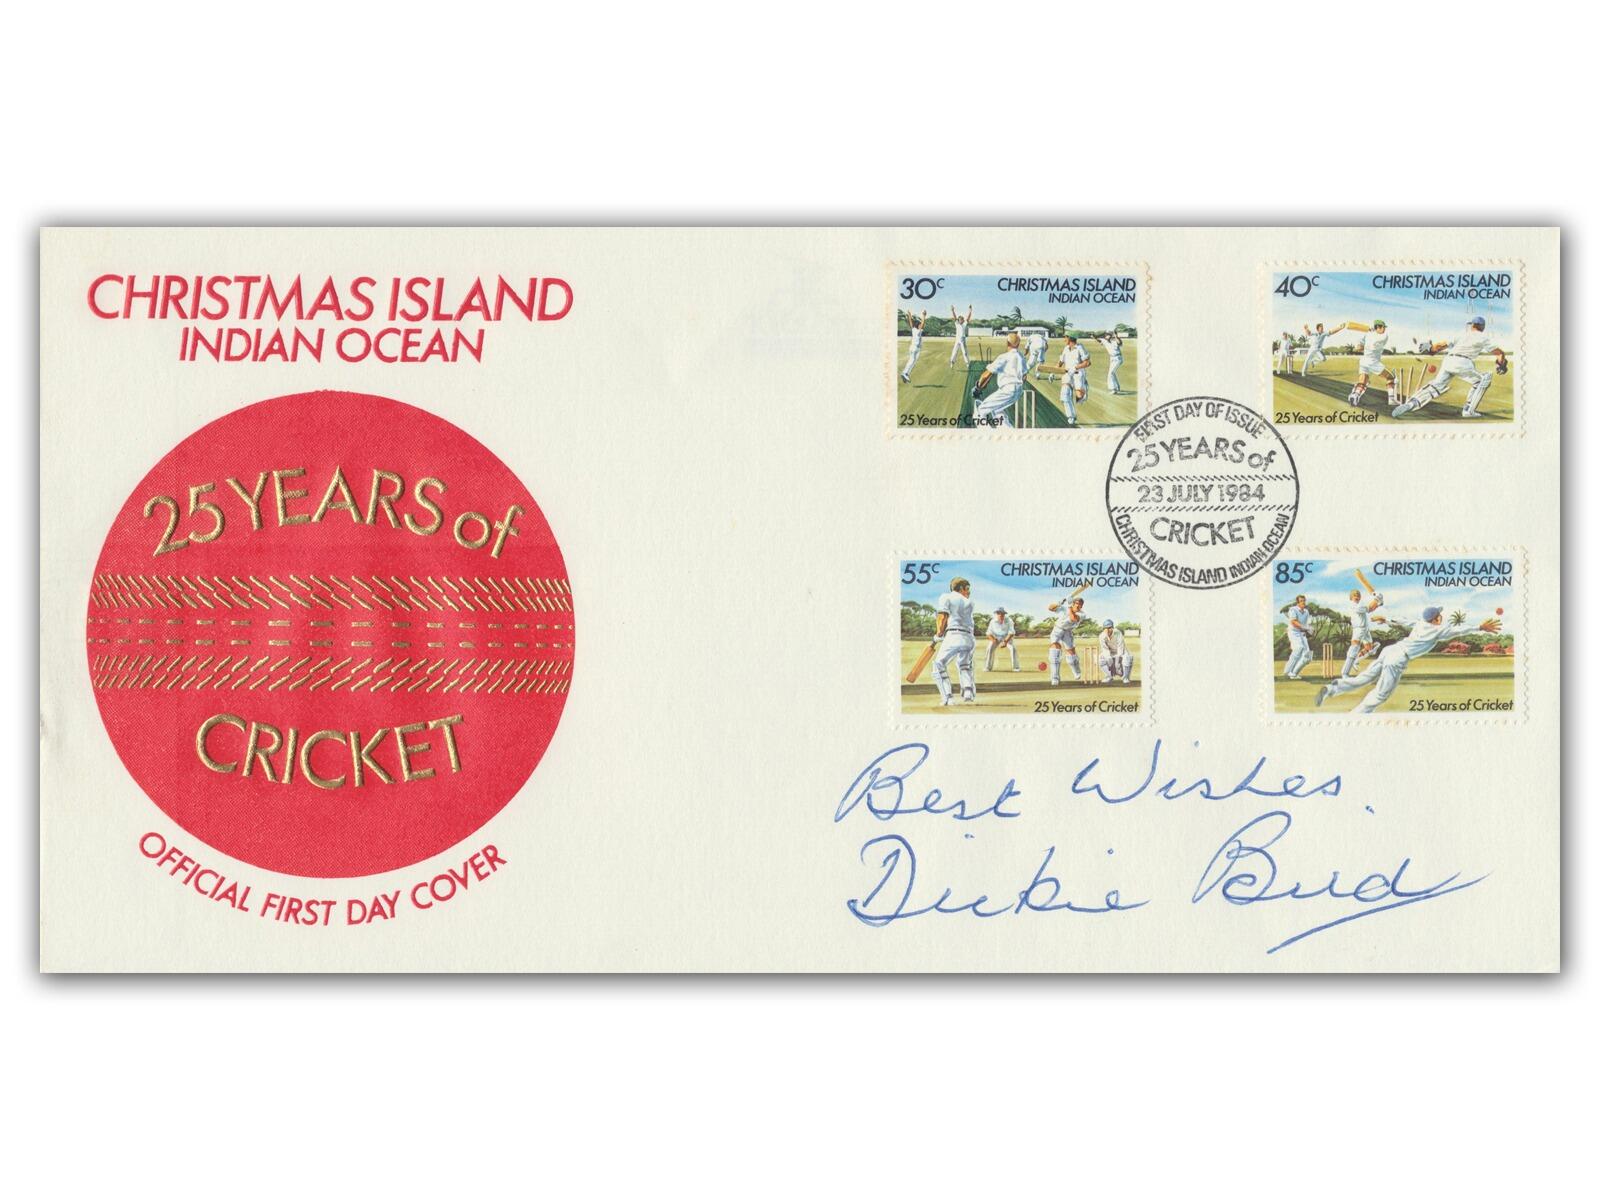 CHRISTMAS ISLAND
INDIAN OCEAN
25 YEARS of
CRICKET
OFFICIAL FIRST DAY COVER
30c
CHRISTMAS ISLAND
INDIAN OCEAN
25 Years of Cricket
40c
CHRISTMAS ISLAND
INDIAN OCEAN
25 Years of Cricket
FIRST DAY OF ISSUE
25 YEARS of
23 JULY 1984
CRICKET
CHRISTMAS ISLAND INDIAN OCEAN
55c
CHRISTMAS ISLAND
INDIAN OCEAN
25 Years of Cricket
85c
CHRISTMAS ISLAND
INDIAN OCEAN
25 Years of Cricket
Best Wishes.
Dickie Bird